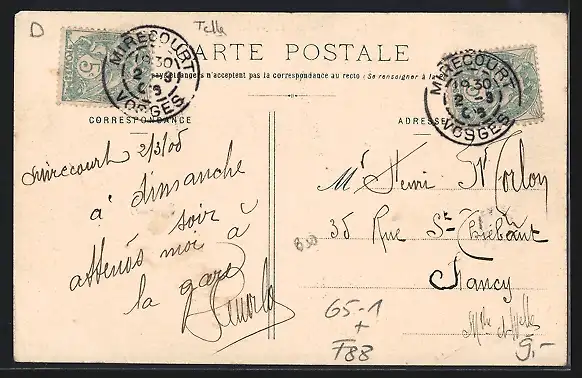 D
Tella
CARTE POSTALE
pays étrangers n'acceptent pas la correspondance au recto (Se renseigner à la
MIRECOURT
18 30
2 -3
05
VOSGES
MIRECOURT
18 30
2 -3
05
VOSGES
CORRESPONDANCE
ADRESSE
Mirecourt 2/3/05
à dimanche
soir
attends moi à
la gare
Mr Henri
35 Rue St Thiébaut
Nancy
B30
65-1
+
F88
9,-